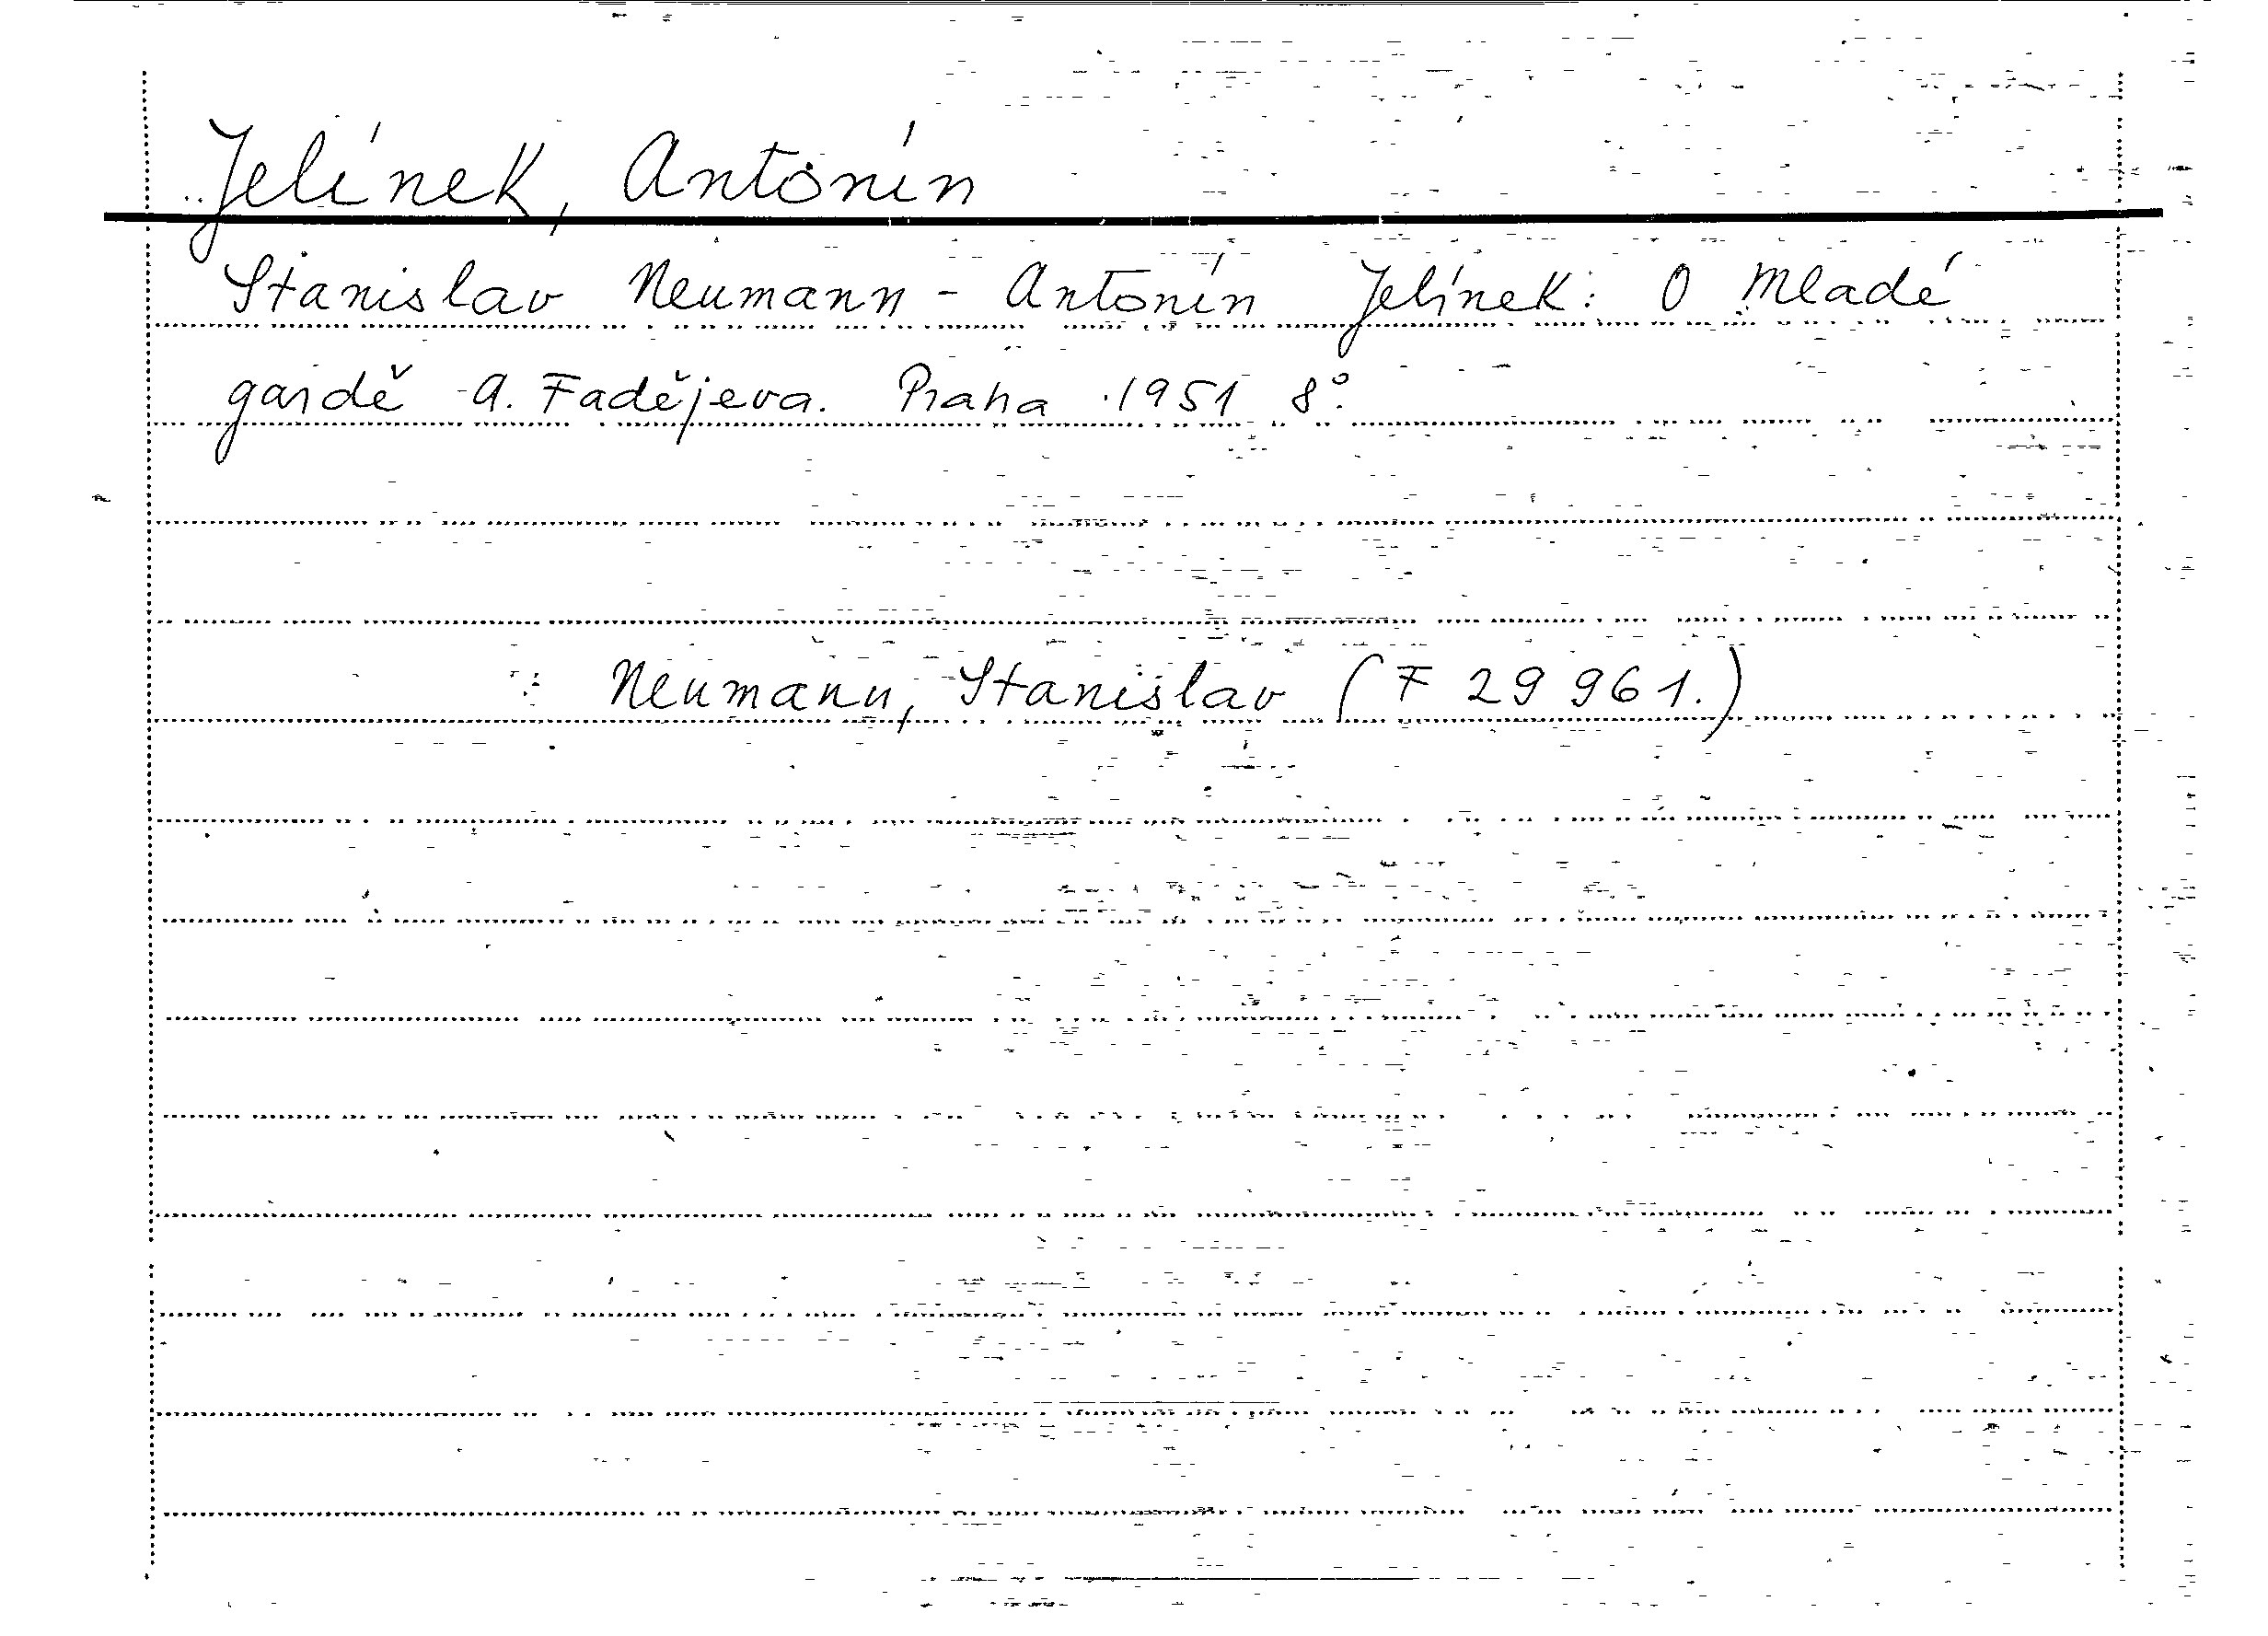 Jelínek, Antonín
Stanislav Neumann - Antonín Jelínek: O Mladé
gardě A. Fadějeva. Praha 1951 8°.
Neumann, Stanislav (F 29 961.)